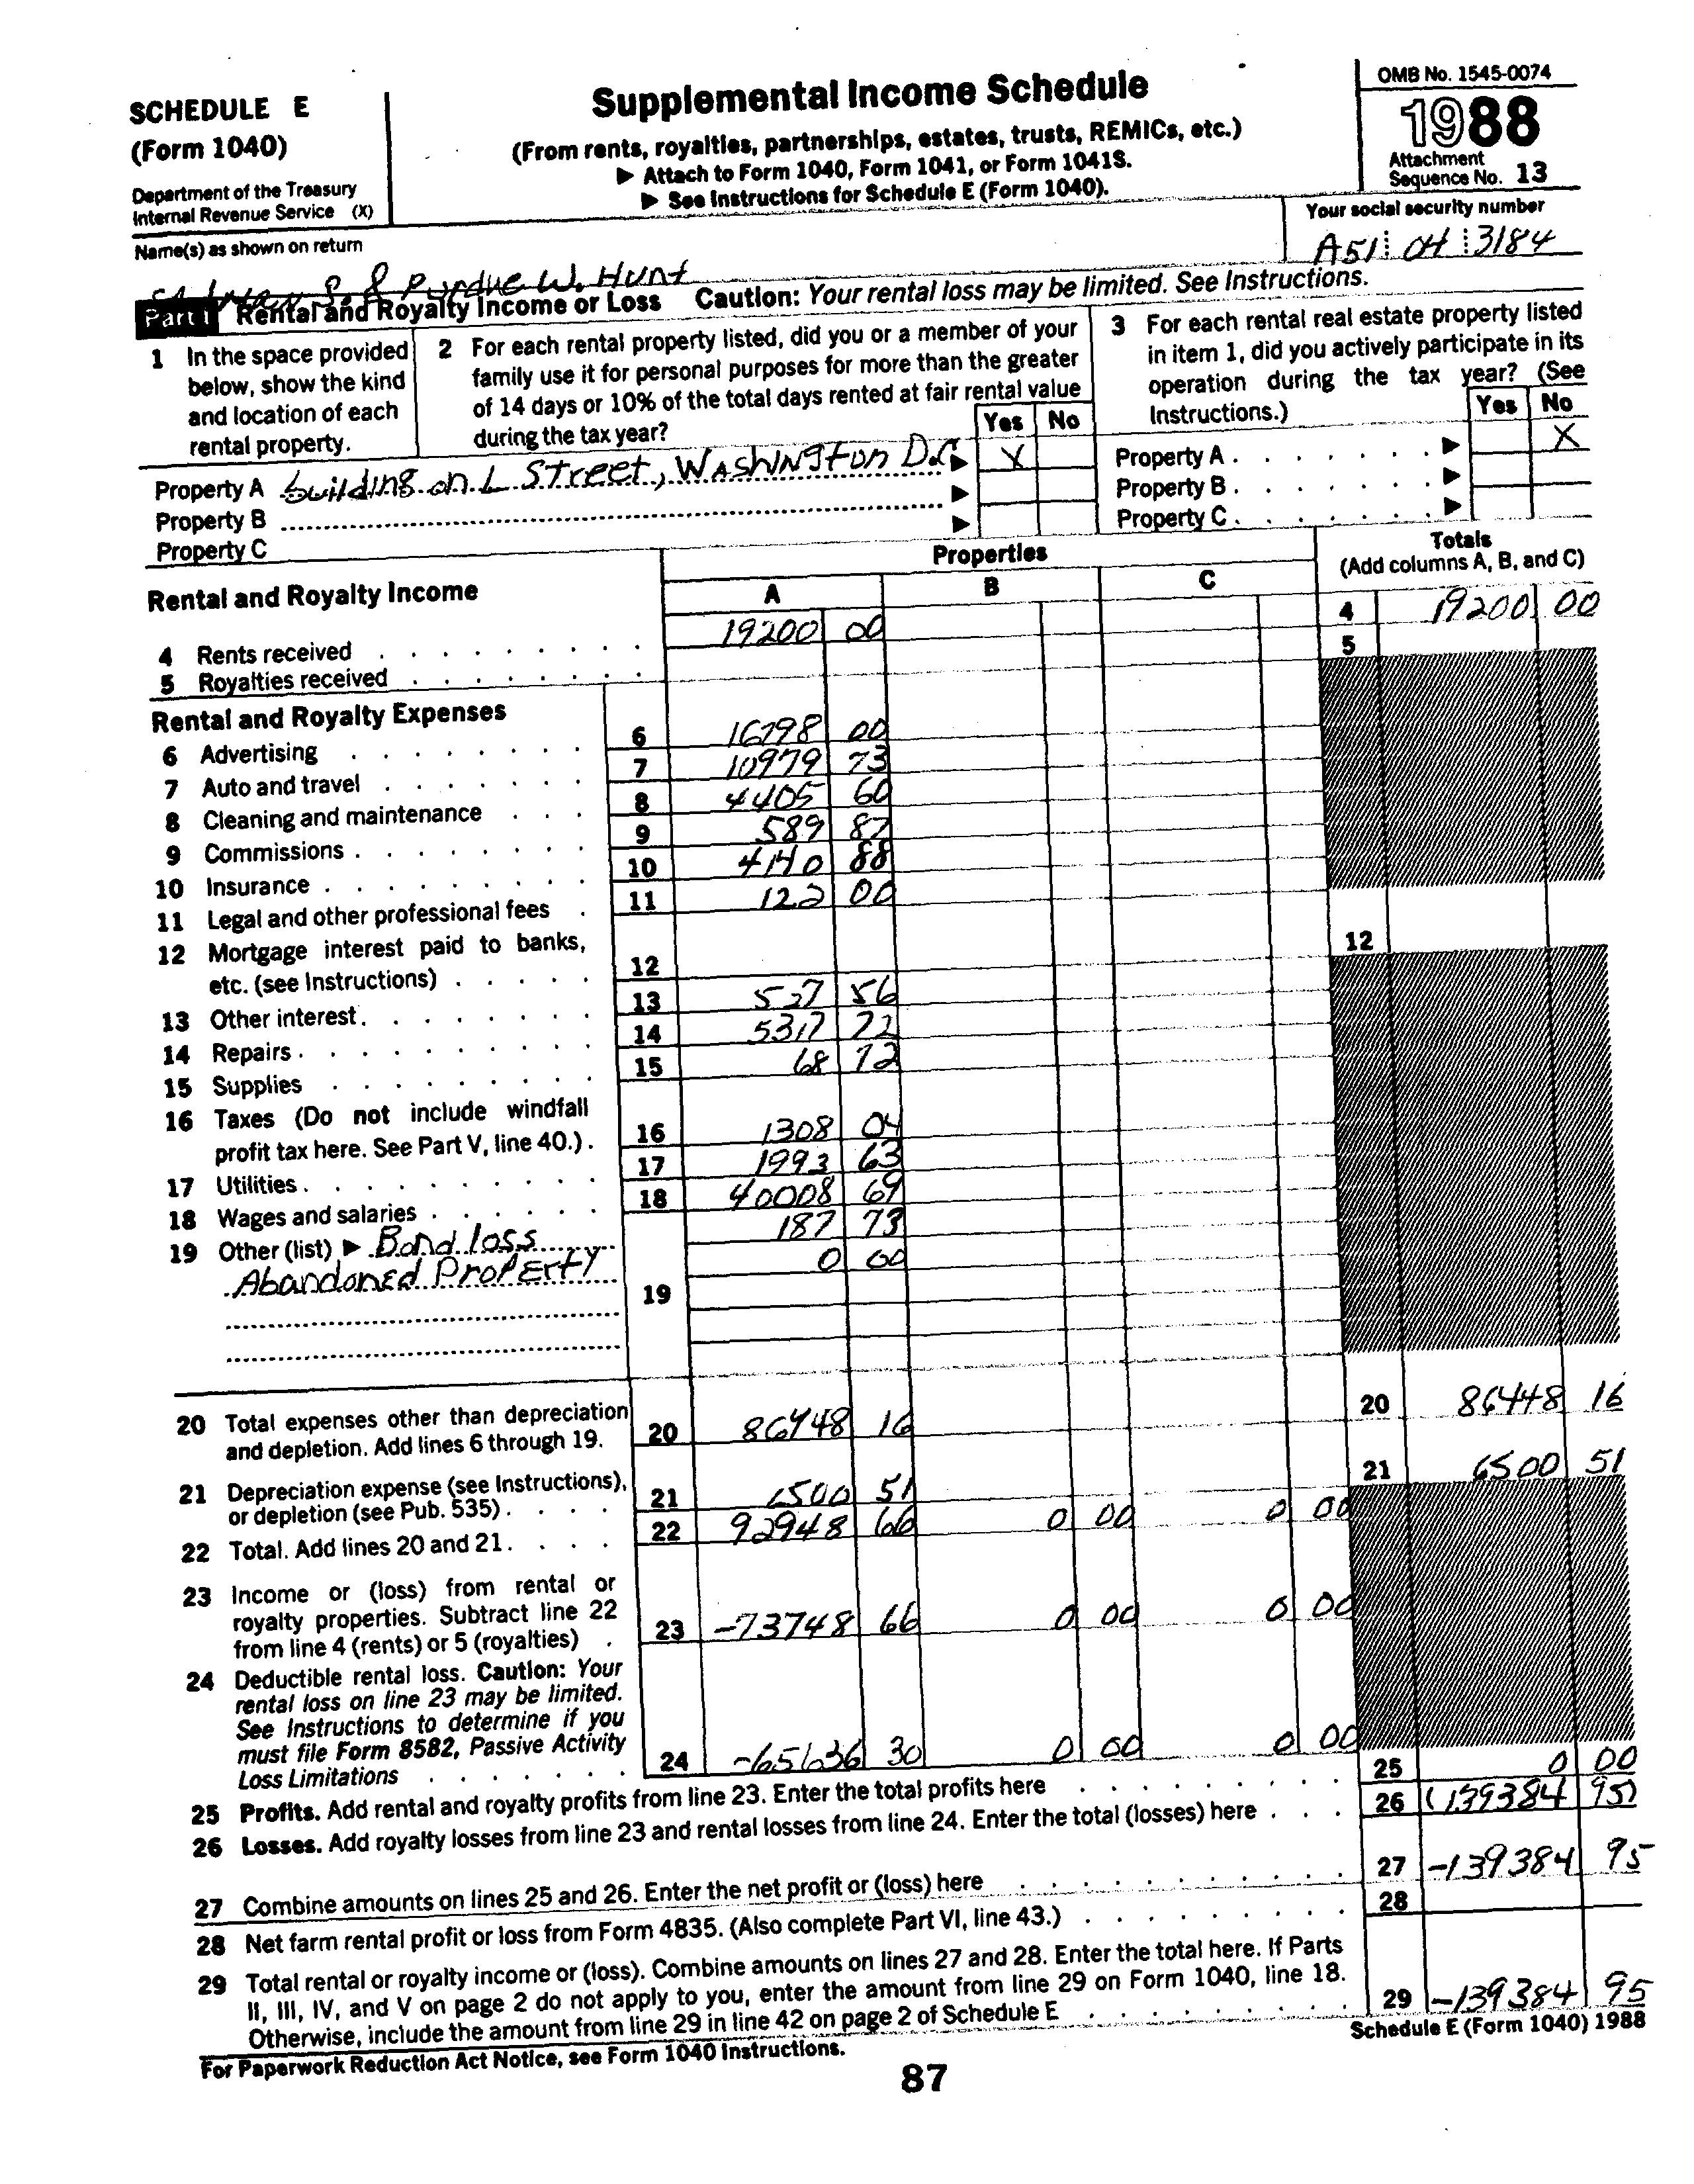 SCHEDULE E
(Form 1040)
Department of the Treasury
Internal Revenue Service (X)
Supplemental Income Schedule
(From rents, royalties, partnerships, estates, trusts, REMICs, etc.)
▶ Attach to Form 1040, Form 1041, or Form 1041S.
▶ See Instructions for Schedule E (Form 1040).
OMB No. 1545-0074
1988
Attachment
Sequence No. 13
Name(s) as shown on return
S. & Purdue W. Hunt
Your social security number
A51 04 3184
Part I Rental and Royalty Income or Loss Caution: Your rental loss may be limited. See Instructions.
1 In the space provided
below, show the kind
and location of each
rental property.
2 For each rental property listed, did you or a member of your
family use it for personal purposes for more than the greater
of 14 days or 10% of the total days rented at fair rental value
during the tax year?
Yes No
3 For each rental real estate property listed
in item 1, did you actively participate in its
operation during the tax year? (See
Instructions.)
Yes No
Property A building on L Street, Washington D.C. ▶ X
Property B ▶
Property C ▶
Property A ▶ X
Property B ▶
Property C ▶
Properties
Totals
(Add columns A, B, and C)
Rental and Royalty Income
A B C
4 Rents received 19200 00 4 19200 00
5 Royalties received 5
Rental and Royalty Expenses
6 Advertising 6 16798 00
7 Auto and travel 7 10979 73
8 Cleaning and maintenance 8 4405 60
9 Commissions 9 589 87
10 Insurance 10 4140 88
11 Legal and other professional fees 11 122 00
12 Mortgage interest paid to banks,
etc. (see Instructions) 12 12
13 Other interest 13 527 56
14 Repairs 14 5317 72
15 Supplies 15 68 72
16 Taxes (Do not include windfall
profit tax here. See Part V, line 40.) 16 1308 04
17 Utilities 17 1993 63
18 Wages and salaries 18 40008 69
19 Other (list) ▶ Bond loss 187 73
Abandoned Property 0 00
19
20 Total expenses other than depreciation
and depletion. Add lines 6 through 19. 20 86448 16 20 86448 16
21 Depreciation expense (see Instructions),
or depletion (see Pub. 535) 21 6500 51 21 6500 51
22 Total. Add lines 20 and 21 22 92948 66 0 00 0 00
23 Income or (loss) from rental or
royalty properties. Subtract line 22
from line 4 (rents) or 5 (royalties) 23 -73748 66 0 00 0 00
24 Deductible rental loss. Caution: Your
rental loss on line 23 may be limited.
See Instructions to determine if you
must file Form 8582, Passive Activity
Loss Limitations 24 -65636 30 0 00 0 00
25 Profits. Add rental and royalty profits from line 23. Enter the total profits here 25 0 00
26 Losses. Add royalty losses from line 23 and rental losses from line 24. Enter the total (losses) here 26 (139384 95)
27 Combine amounts on lines 25 and 26. Enter the net profit or (loss) here 27 -139384 95
28 Net farm rental profit or loss from Form 4835. (Also complete Part VI, line 43.) 28
29 Total rental or royalty income or (loss). Combine amounts on lines 27 and 28. Enter the total here. If Parts
II, III, IV, and V on page 2 do not apply to you, enter the amount from line 29 on Form 1040, line 18.
Otherwise, include the amount from line 29 in line 42 on page 2 of Schedule E 29 -139384 95
For Paperwork Reduction Act Notice, see Form 1040 Instructions.
Schedule E (Form 1040) 1988
87